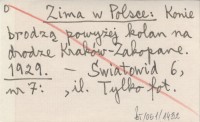 Zima w Polsce: Konie
brodzą powyżej kolan na
drodze Kraków-Zakopane.
1929. – Światowid 6,
nr 7: , il. Tylko fot.